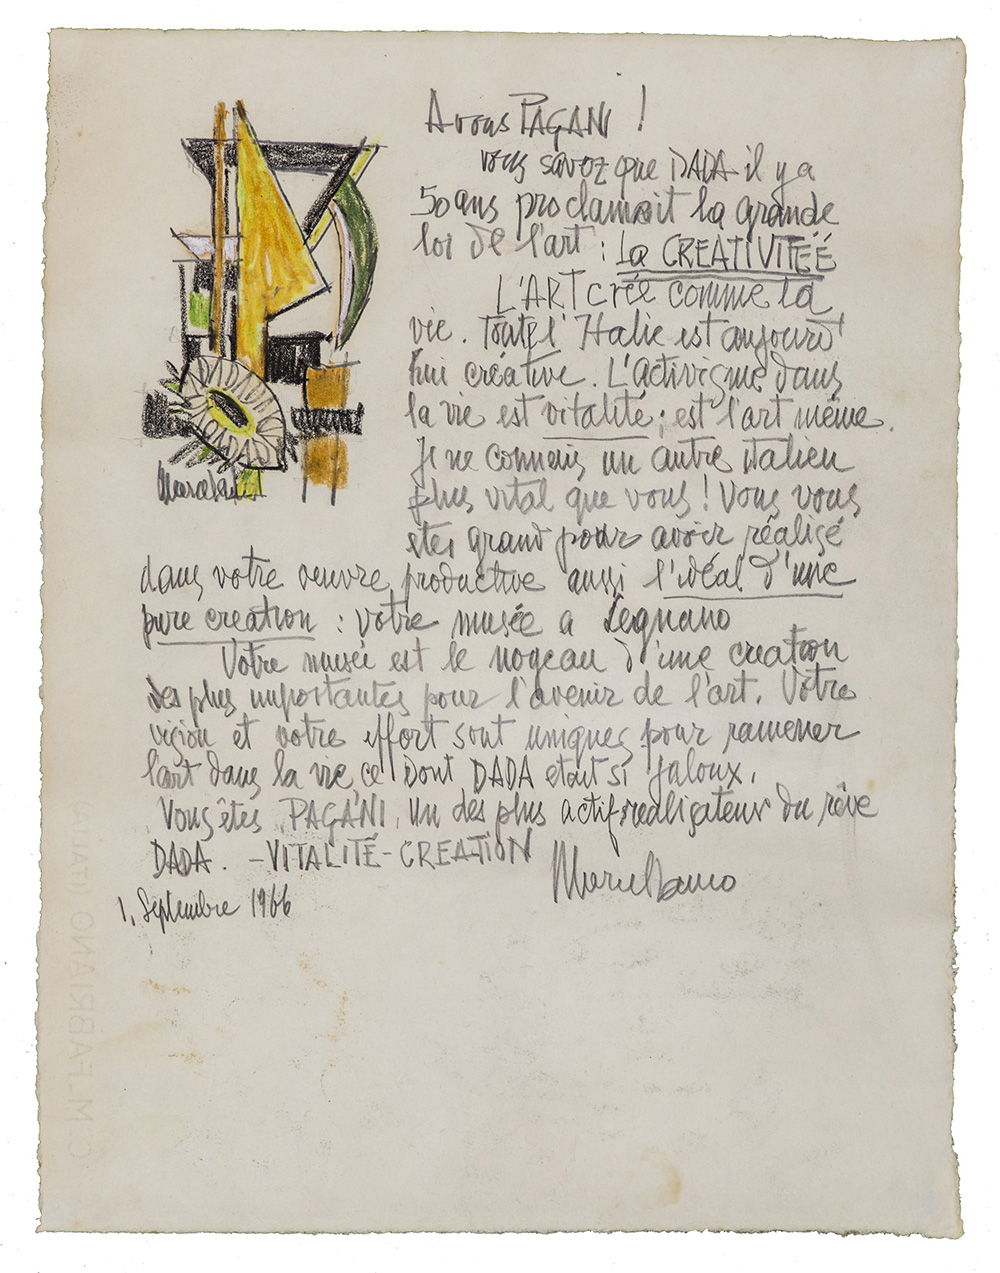 A vous PAGANI !
vous savoz que DADA il y a
50 ans proclamait la grande
loi de l'art : La CREATIVITEÉ
L'ART crée comme la
vie. Toute l'Italie est aujourd'
hui créative. L'activisme dans
la vie est vitalité ; est l'art même.
Je ne connais un autre italien
plus vital que vous ! Vous vous
etes grand pour avoir réalisé
dans votre oeuvre productive aussi l'idéal d'une
pure creation : votre musée a Legnano
Votre musée est le noyeau d'une creation
des plus importantes pour l'avenir de l'art. Votre
vision et votre effort sont uniques pour ramener
l'art dans la vie, ce dont DADA etait si jaloux.
Vous êtes PAGANI, un des plus actifs realisateur du rêve
DADA. - VITALITÉ - CREATION
Marcel Janco
1. Septembre 1966
C. M. FABRIANO (ITALIA)